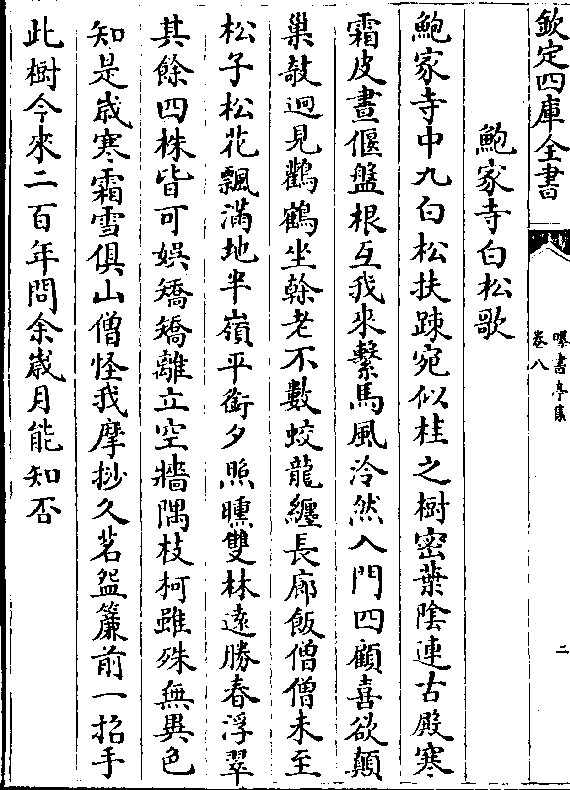 欽定四庫全書
曝書亭集
卷八
二
鮑家寺白松歌
鮑家寺中九白松扶踈宛似桂之樹密葉陰連古殿寒
霜皮晝偃盤根互我來繫馬風泠然入門四顧喜欲顛
巢攲迥見鸛鶴坐榦老不數蛟龍纏長廊飯僧僧未至
松子松花飄滿地半嶺平銜夕照曛雙林逺勝春浮翠
其餘四株皆可娯矯矯離立空牆隅枝柯雖殊無異色
知是歲寒霜雪俱山僧怪我摩挱久茗盌簾前一招手
此樹今來二百年問余嵗月能知否